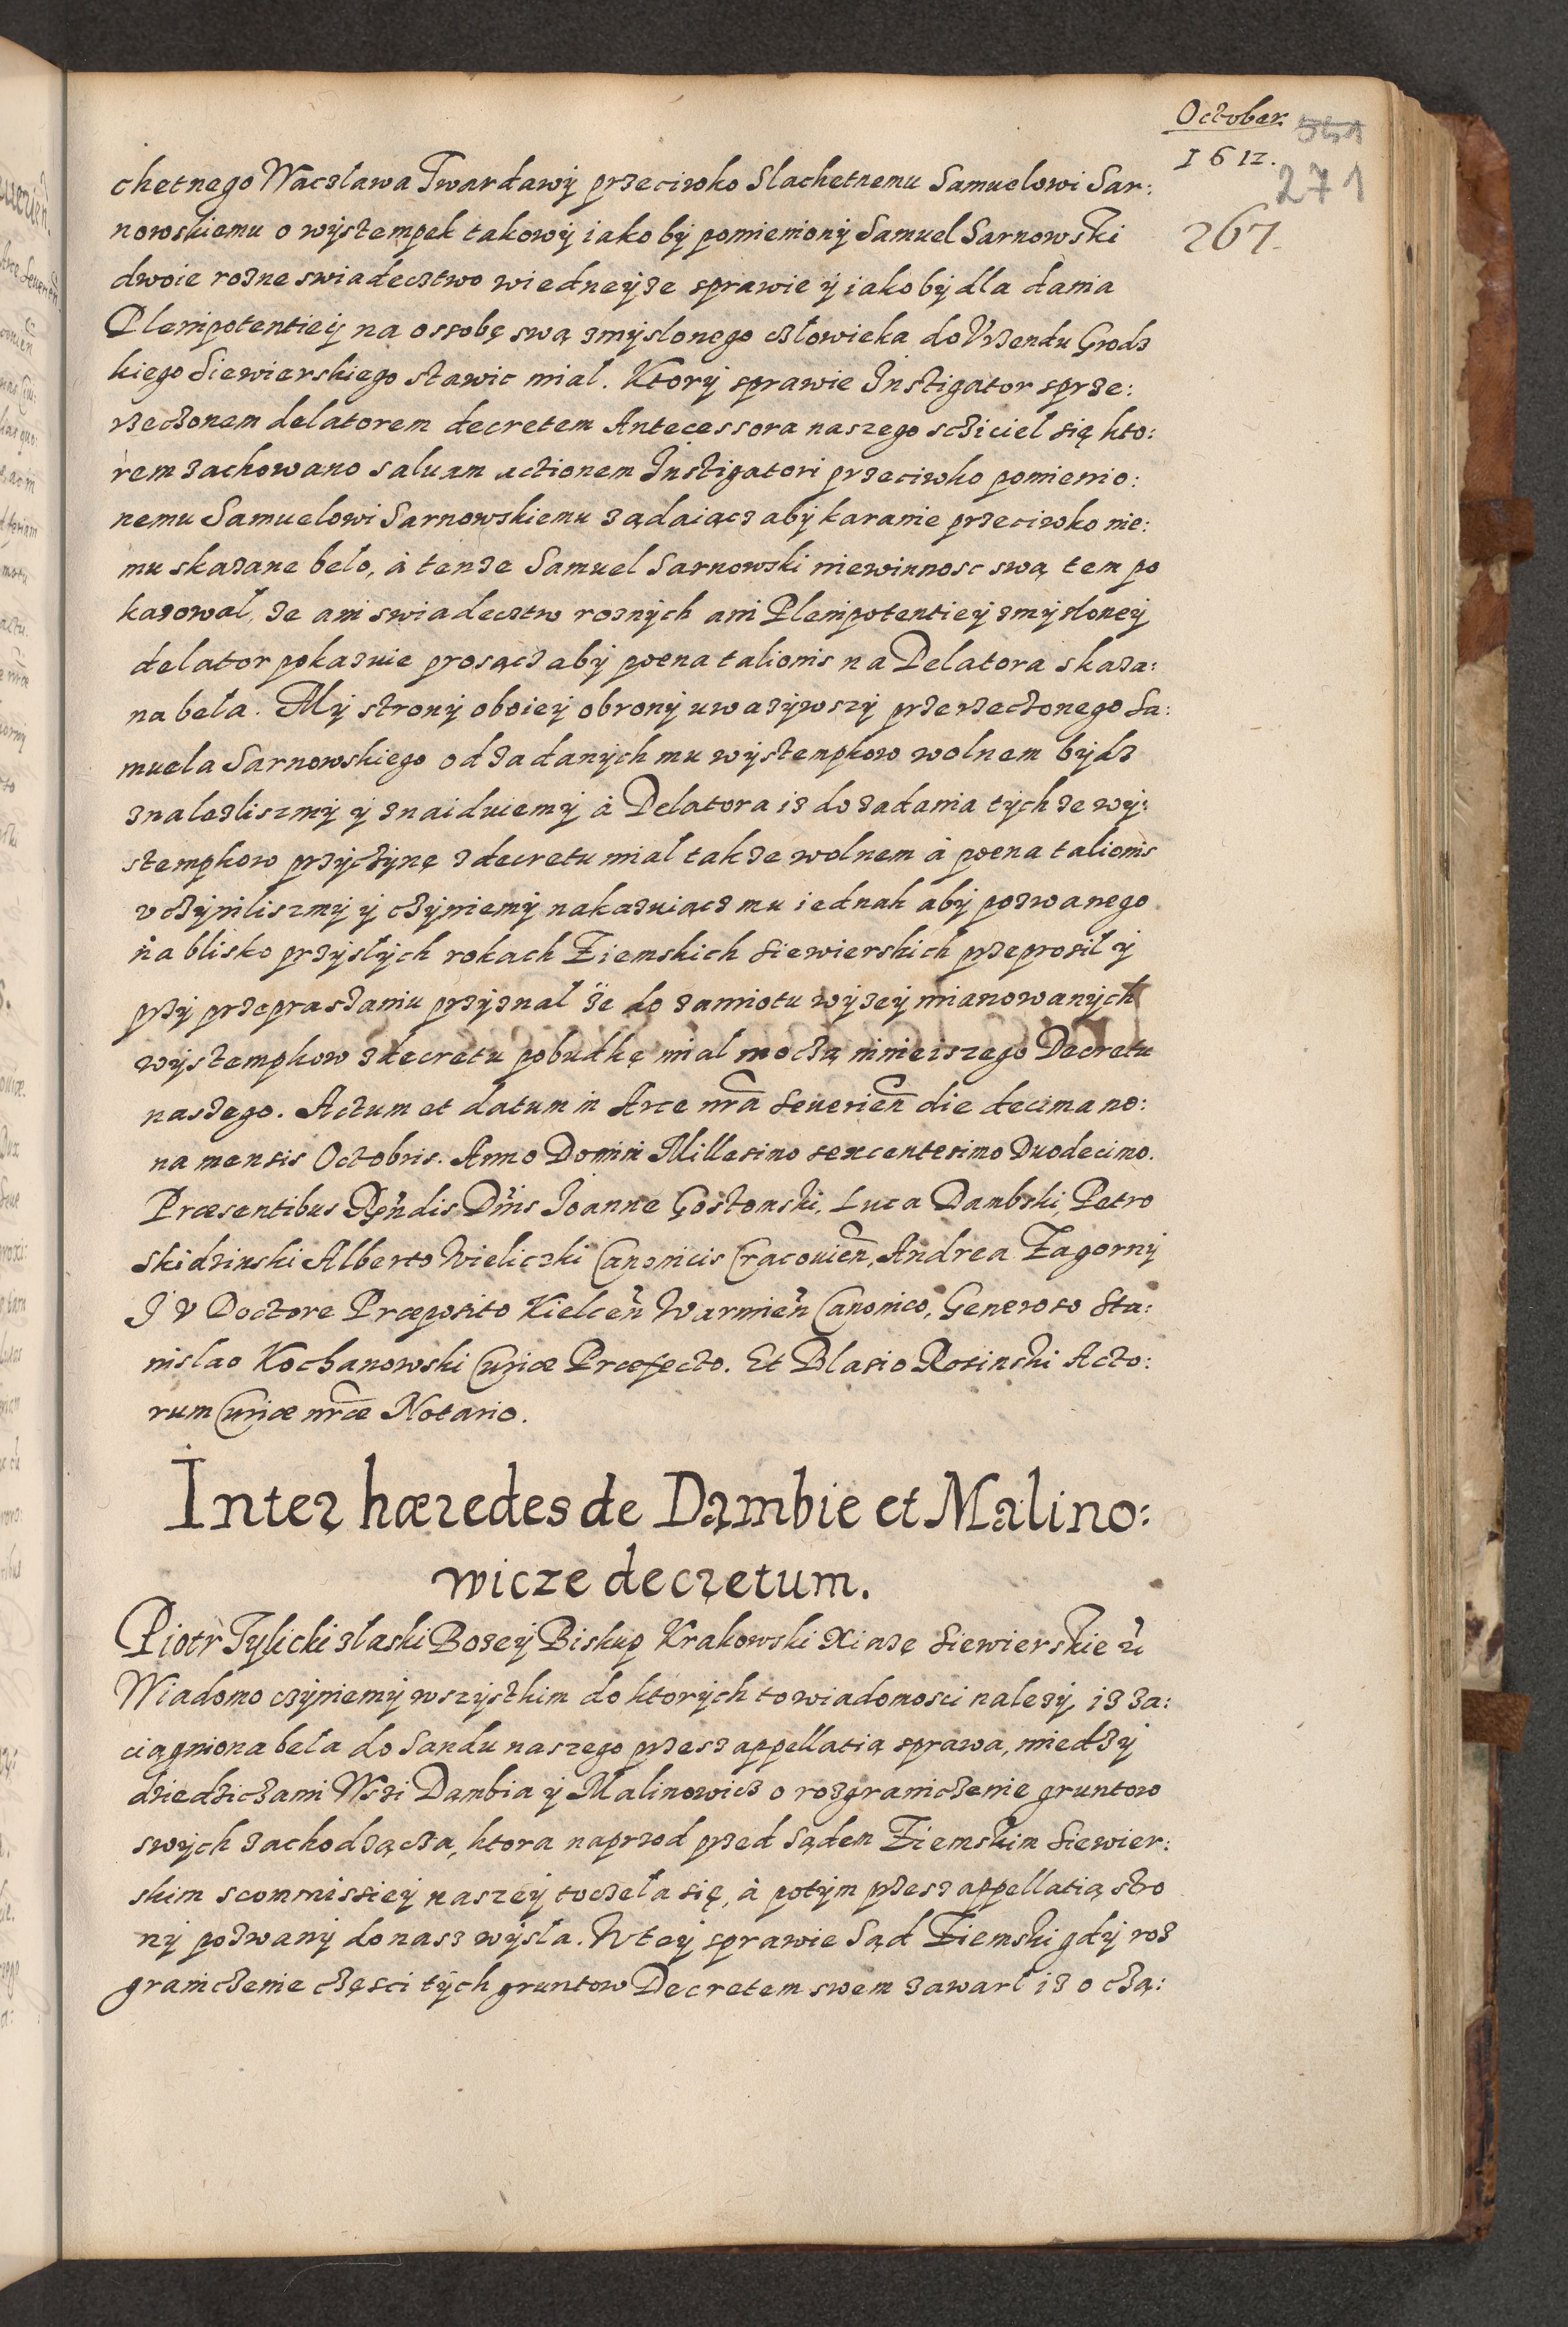 October.
1612.
551
271
267.
chetnego Waczlawa Twardawÿ przeciwko Slachetnemu Samuelowi Sar:
nowskiemu o wÿstempek takowÿ iako bÿ pomienionÿ Samuel Sarnowski
dwoie rozne swiadecztwo wiedneÿze sprawie ÿ iako bÿ dla dania
Plenipotentieÿ na ossobę swą zmÿslonego człowieka do Vrzendu Grodz
kiego Siewierskiego stawic mial. Ktorÿ sprawie Instigator sprze:
rzeczonem delatorem decretem Antecessora naszego scziciel się kto:
rem zachowano saluam actionem Instigatori przeciwko pomienio:
nemu Samuelowi Sarnowskiemu ządaiącz abÿ karanie przeciwko nie:
mu skazane belo, à tenze Samuel Sarnowski niewinnosc swą tem po
kazowal, ze ani swiadecztw roznÿch ani Plenipotentieÿ zmÿsloneÿ
delator pokazuie prosącz abÿ poena talionis na Delatora skaza:
na beła. Mÿ stronÿ oboieÿ obronÿ uwazÿwszÿ przerzeczonego Sa:
muela Sarnowskiego od zadanÿch mu wÿstempkow wolnem bÿdz
znalezliszmÿ ÿ znaiduiemÿ à Delatora iz do zadania tÿchze wÿ:
stempkow przÿczÿnę z decretu mial takze wolnem à poena talionis
vczÿniliszmÿ ÿ czÿniemÿ nakazuiącz mu iednak abÿ pozwanego
na blisko przÿslÿch rokach Ziemskich Siewierskich przeprosil ÿ
przÿ przepraszaniu przÿznal ze do zamiotu wÿzeÿ mianowanÿch
wÿstempkow z decretu pobudkę mial moczą ninieiszego Decretu
naszego. Actum et datum in Arce nrã Seuerieñ die decima no:
na mensis Octobris. Anno Domini Millesimo sexcentesimo Duodecimo.
Præsentibus Rñdis Dñis Joanne Gostomski, Luca Dambski, Petro
Skidzinski Alberto Wieliczki Canonicis Cracouieñ, Andrea Zagornÿ
J V Doctore Præposito Kielceñ Warmieñ Canonico, Generoso Sta:
nislao Kochanowski Curiæ Præfecto. Et Blasio Rosinski Acto:
rum Curiæ nrãe Notario.
Inter hæredes de Dąmbie et Malino:
wicze decretum.
Piotr Tylicki zlaski Bozeÿ Biskup Krakowski Xiązę Siewierskie etc
Wiadomo czÿniemÿ wszÿstkim do ktorÿch to wiadomosci nalezÿ, iz za:
ciągniona beła do Sandu naszego przesz appellatią sprawa, miedzÿ
dziedziczami Wszi Dąmbia ÿ Malinowicz o rozgraniczenie gruntow
swÿch zachodząca, ktora naprzod przed Sądem Ziemskim Siewier:
skim s commissieÿ naszeÿ toczeła się, à potÿm przesz appellatią stro
nÿ pozwanÿ do nasz wÿsla. W teÿ sprawie Sąd Ziemski gdÿ roz
graniczenie częsci tÿch gruntow Decretem swem zawarl iz o czą: